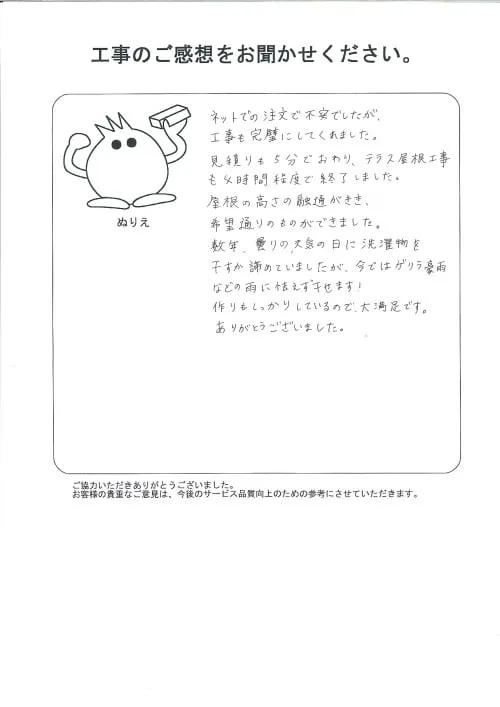 工事のご感想をお聞かせください。
ぬりえ
ネットでの注文で不安でしたが、
工事も完璧にしてくれました。
見積りも5分でおわり、テラス屋根工事
も4時間程度で終了しました。
屋根の高さの融通がきき、
希望通りのものができました。
数年、曇りの天気の日に洗濯物を
干すか諦めていましたが、今ではゲリラ豪雨
などの雨に怯えず干せます!
作りもしっかりしているので、大満足です。
ありがとうございました。
ご協力いただきありがとうございました。
お客様の貴重なご意見は、今後のサービス品質向上のための参考にさせていただきます。